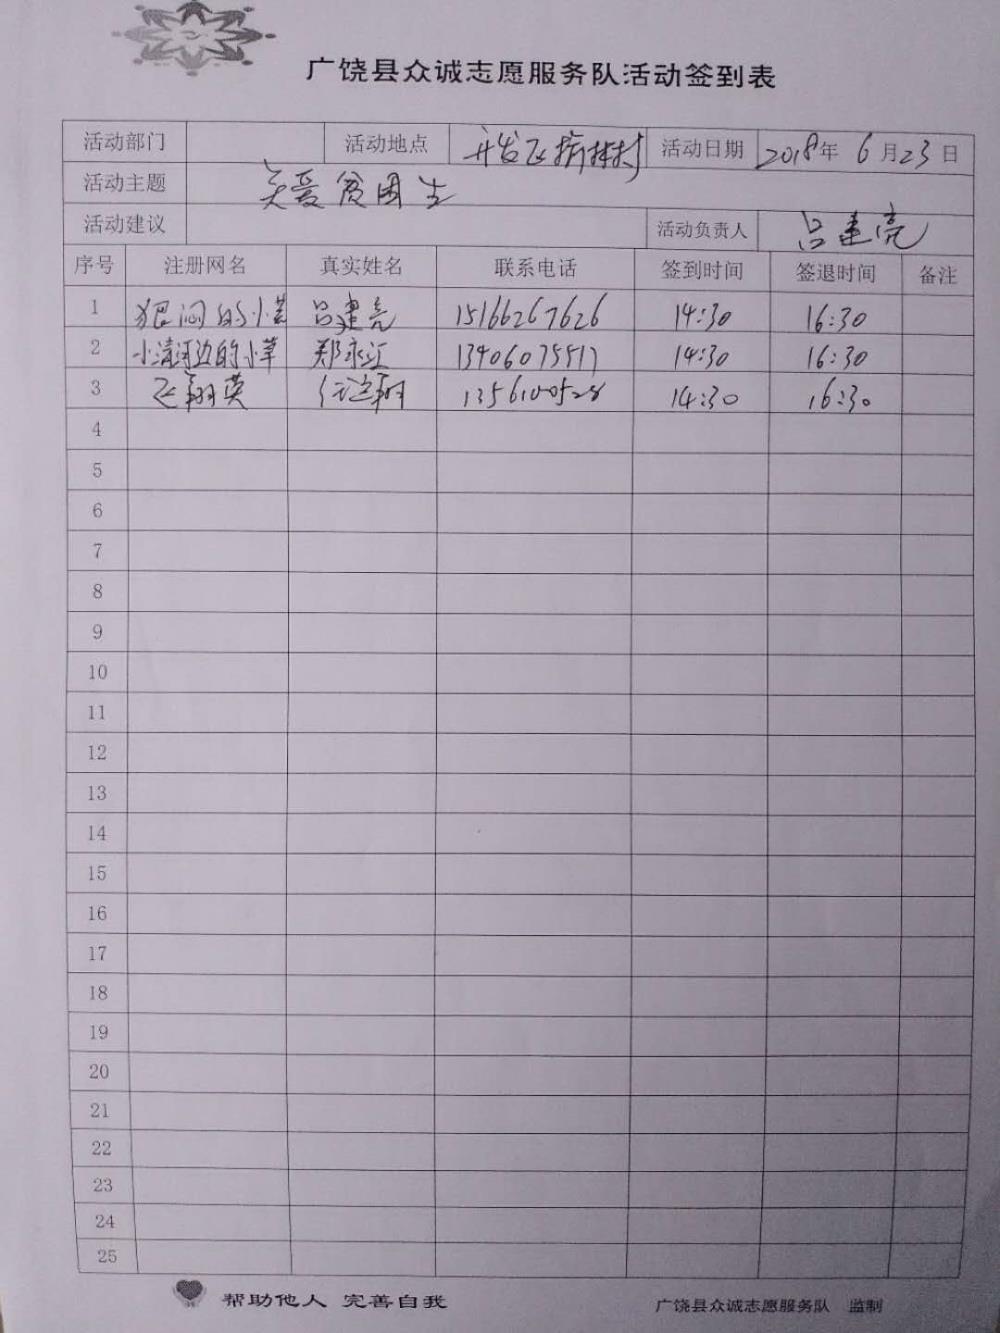 广饶县众诚志愿服务队活动签到表
活动部门 活动地点 开发区 活动日期 2018年 6月23日
活动主题 关爱贫困生
活动建议 活动负责人 吕建亮
序号 注册网名 真实姓名 联系电话 签到时间 签退时间 备注
1 狠闷的小草 吕建亮 15166267626 14:30 16:30
2 小清河边的小草 郑永江 13406075517 14:30 16:30
3 飞翔英 14:30 16:30
4
5
6
7
8
9
10
11
12
13
14
15
16
17
18
19
20
21
22
23
24
25
帮助他人 完善自我 广饶县众诚志愿服务队 监制